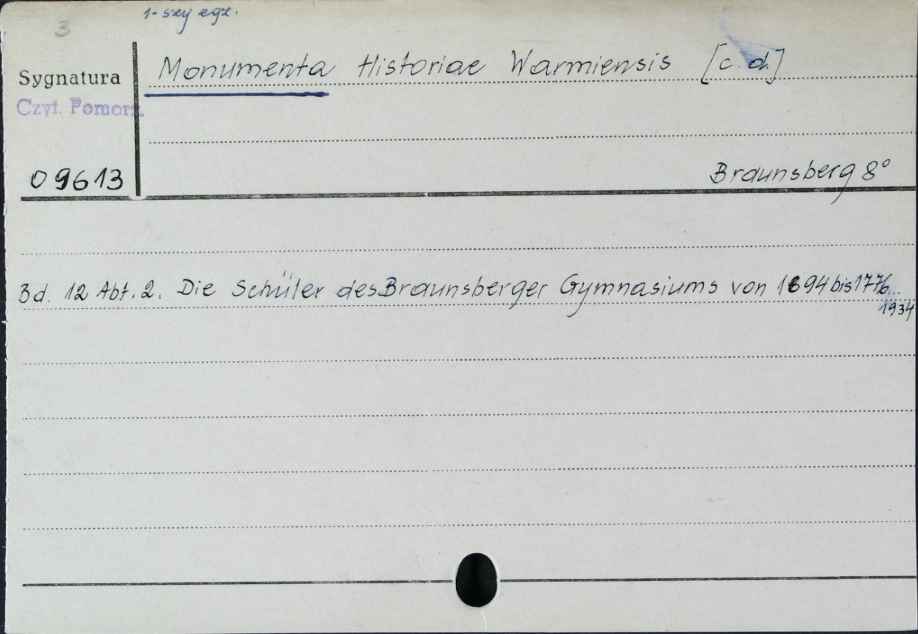 3
1-szy egz.
Sygnatura
Monumenta Historiae Warmiensis [c.d.]
Czyt. Pomorz.
09613
Braunsberg 8°
Bd. 12 Abt. 2. Die Schüler des Braunsberger Gymnasiums von 1694 bis 1776...
1934